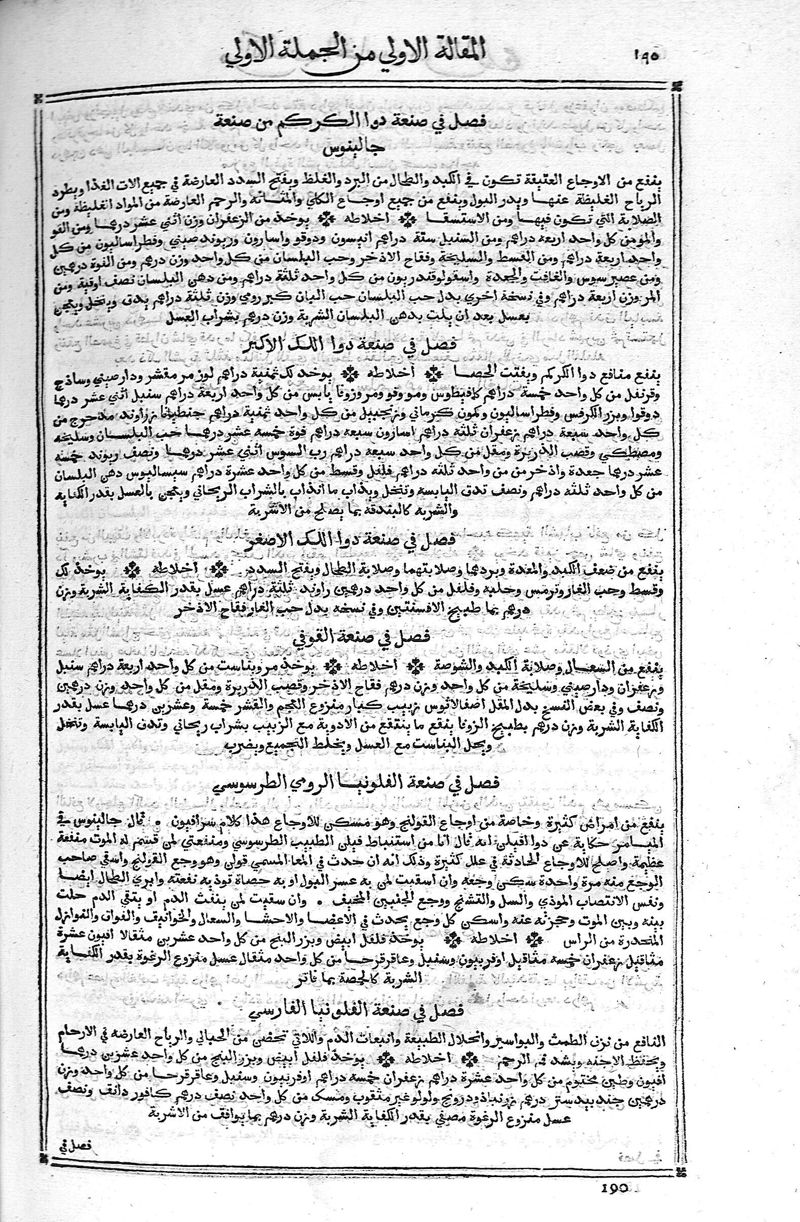 المقالة الاولي من الجملة الاولي
١٩٠
فصل في صنعة دوا الكركم من صنعة
جالينوس
ينفع من الاوجاع العتيقة تكون في الكبد والطحال من البرد والغلظ ويفتح السدد العارضة في جميع الات الغذا ويطرد
الرياح الغليظة عنها ويدر البول وينفع من جميع اوجاع الكلي والمثانة والرحم العارضة من المواد الغليظة ومن
الصلابة التي تكون فيها ومن الاستسقا اخلاطه يوخذ من الزعفران وزن اثني عشر درهما ومن الفو
والمو من كل واحد اربعة دراهم ومن السنبل ستة دراهم انيسون ودوقو واسارون وريوند صيني وفطراساليون من كل
واحد اربعة دراهم ومن القسط والسليخة وفقاح الاذخر وحب البلسان من كل واحد وزن درهم ومن الفوة درهمين
ومن عصير سوس والغافت والجعدة واسقولوقندريون من كل واحد ثلثة دراهم ومن دهن البلسان نصف اوقية ومن
المر وزن اربعة دراهم وفي نسخة اخري بدل حب البلسان حب البان كبر رومي وزن ثلثة دراهم يدق وينخل ويعجن
بعسل بعد ان يلت بدهن البلسان الشربة وزن درهم بشراب العسل
فصل في صنعة دوا اللك الاكبر
ينفع منافع دوا الكركم ويفتت الحصا اخلاطه يوخذ لك ثمنية دراهم لوز مر مقشر ودارصيني وساذج
وقرنفل من كل واحد خمسة دراهم كمافيطوس ومو وفو ومر وزوفا يابس من كل واحد اربعة دراهم سنبل اثني عشر درهما
دوقوا وبزر الكرفس وفطراساليون وكمون كرماني وزنجبيل من كل واحد ثمنية دراهم جنطيانا زراوند مدحرج من
كل واحد سبعة دراهم زعفران ثلثة دراهم اسارون سبعة دراهم فوة خمسة عشر درهما حب البلسان وسليخة
ومصطكي وقصب الذريرة ومقل من كل واحد سبعة دراهم رب السوس اثني عشر درهما ونصف ريوند خمسة
عشر درهما جعدة واذخر من من كل واحد ثلثة دراهم فلفل وقسط من كل واحد عشرة دراهم سيساليوس دهن البلسان
من كل واحد ثلثة دراهم ونصف تدق اليابسة وتنخل ويذاب ما انذاب بالشراب الريحاني ويعجن بالعسل بقدر الكفاية
والشربة كالبندقة بما يصلح من الاشربة
فصل في صنعة دوا اللك الاصغر
ينفع من ضعف الكبد والمعدة وبردهما وصلابتهما وصلابة الطحال ويفتح السدد اخلاطه يوخذ لك
وقسط وحب الغار وترمس وحلبه وفلفل من كل واحد درهمين راوند ثلثة دراهم عسل بقدر الكفاية الشربة وزن
درهم بما طبيخ الافسنتين وفي نسخه بدل حب الغار فقاح الاذخر
فصل في صنعة القوفي
ينفع من السعال وصلابة الكبد والشوصة اخلاطه يوخذ مر وبناست من كل واحد اربعة دراهم سنبل
وزعفران ودارصيني وسليخة من كل واحد وزن درهم فقاح الاذخر وقصب الذريرة ومقل من كل واحد وزن درهمين
ونصف وفي بعض النسخ بدل المقل اصفالاثوس زبيب كبار منزوع العجم والقشر خمسة وعشرين درهما عسل بقدر
الكفاية الشربة وزن درهم بطبيخ الزوفا ينقع ما ينتقع من الادوية مع الزبيب بشراب ريحاني وتدق اليابسة وتنخل
ويحل البناست مع العسل ويخلط الجميع ويضرب
فصل في صنعة الفلونيا الرومي الطرسوسي
ينفع من امراض كثيرة وخاصة من اوجاع القولنج وهو مسكن للاوجاع هذا كلام سرافيون قال جالينوس في
الميامر حكاية عن دوا افيلن انه قال انا من استنباط فيلن الطبيب الطرسوسي ومنفعتي لمن قسم له الموت منفعة
عظيمة واصلح للاوجاع الحادثة في علل كثيرة وذلك انه ان حدث في المعا المسمي قولن وهو وجع القولنج واسقي صاحب
الوجع منه مرة واحدة سكن وجعه وان اسقيت لمن به عسر البول او به حصاة توذيه نفعته وابري الطحال ايضا
ونفس الانتصاب الموذي والسل والتشنج ووجع الجنبين المخيف وان سقيت لمن ينفث الدم او يتقي الدم حلت
بينه وبين الموت وحجزته عنه واسكن كل وجع يحدث في الاعضا والاحشا والسعال والخوانيق والفواق والنوازل
المتحدرة من الراس اخلاطه يوخذ فلفل ابيض وبزر البنج من كل واحد عشرين مثقالا افيون عشرة
مثاقيل زعفران خمسة مثاقيل اوفربيون وسنبل وعاقرقرحا من كل واحد مثقال عسل منزوع الرغوة بقدر الكفاية
الشربة كالحمصة بما فاتر
فصل في صنعة الفلونيا الفارسي
النافع من نزف الطمث والبواسير وانحلال الطبيعة وانبعاث الدم واللاتي تحضن من الحبالي والرياح العارضة في الارحام
ويحفظ الاجنه ويشد فم الرحم اخلاطه يوخذ فلفل ابيض وبزر البنج من كل واحد عشرين درهما
افيون وطين مختوم من كل واحد عشرة دراهم زعفران خمسة دراهم اوفربيون وسنبل وعاقرقرحا من كل واحد وزن
درهمين جندبيدستر درهم زرنباذ ودرونج ولولو غير مثقوب ومسك من كل واحد نصف درهم كافور دانق ونصف
عسل منزوع الرغوة مصفي بقدر الكفاية الشربة وزن درهم بما يوافق من الاشربة
فصل في
190